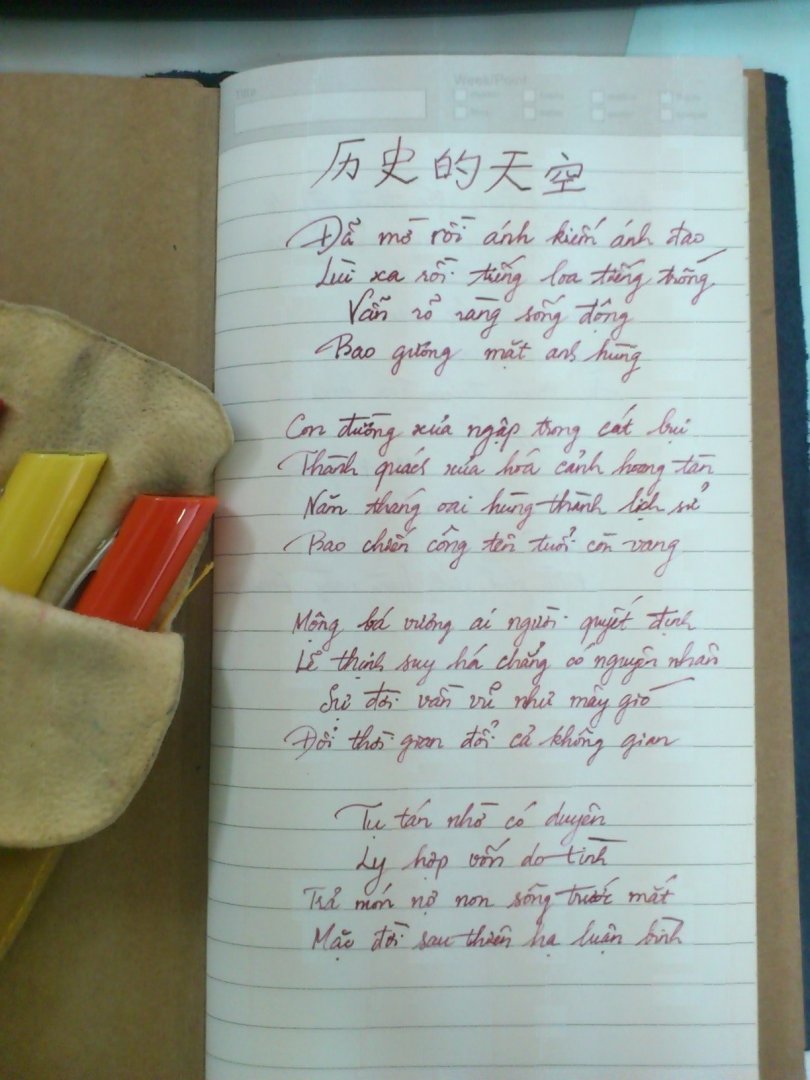 Title
Week/Point
历史的天空
Đã mờ rồi ánh kiếm ánh đao
Lùi xa rồi tiếng loa tiếng trống
Vẫn rõ ràng sống động
Bao gương mặt anh hùng
Con đường xưa ngập trong cát bụi
Thành quách xưa hoá cảnh hoang tàn
Năm tháng oai hùng thành lịch sử
Bao chiến công tên tuổi còn vang
Mộng bá vương ai người quyết định
Lẽ thịnh suy há chẳng có nguyên nhân
Sự đời vần vũ như mây gió
Đổi thời gian đổi cả không gian
Tụ tán nhờ có duyên
Ly hợp vốn do tình
Trả món nợ non sông trước mắt
Mặc đời sau thiên hạ luận bình